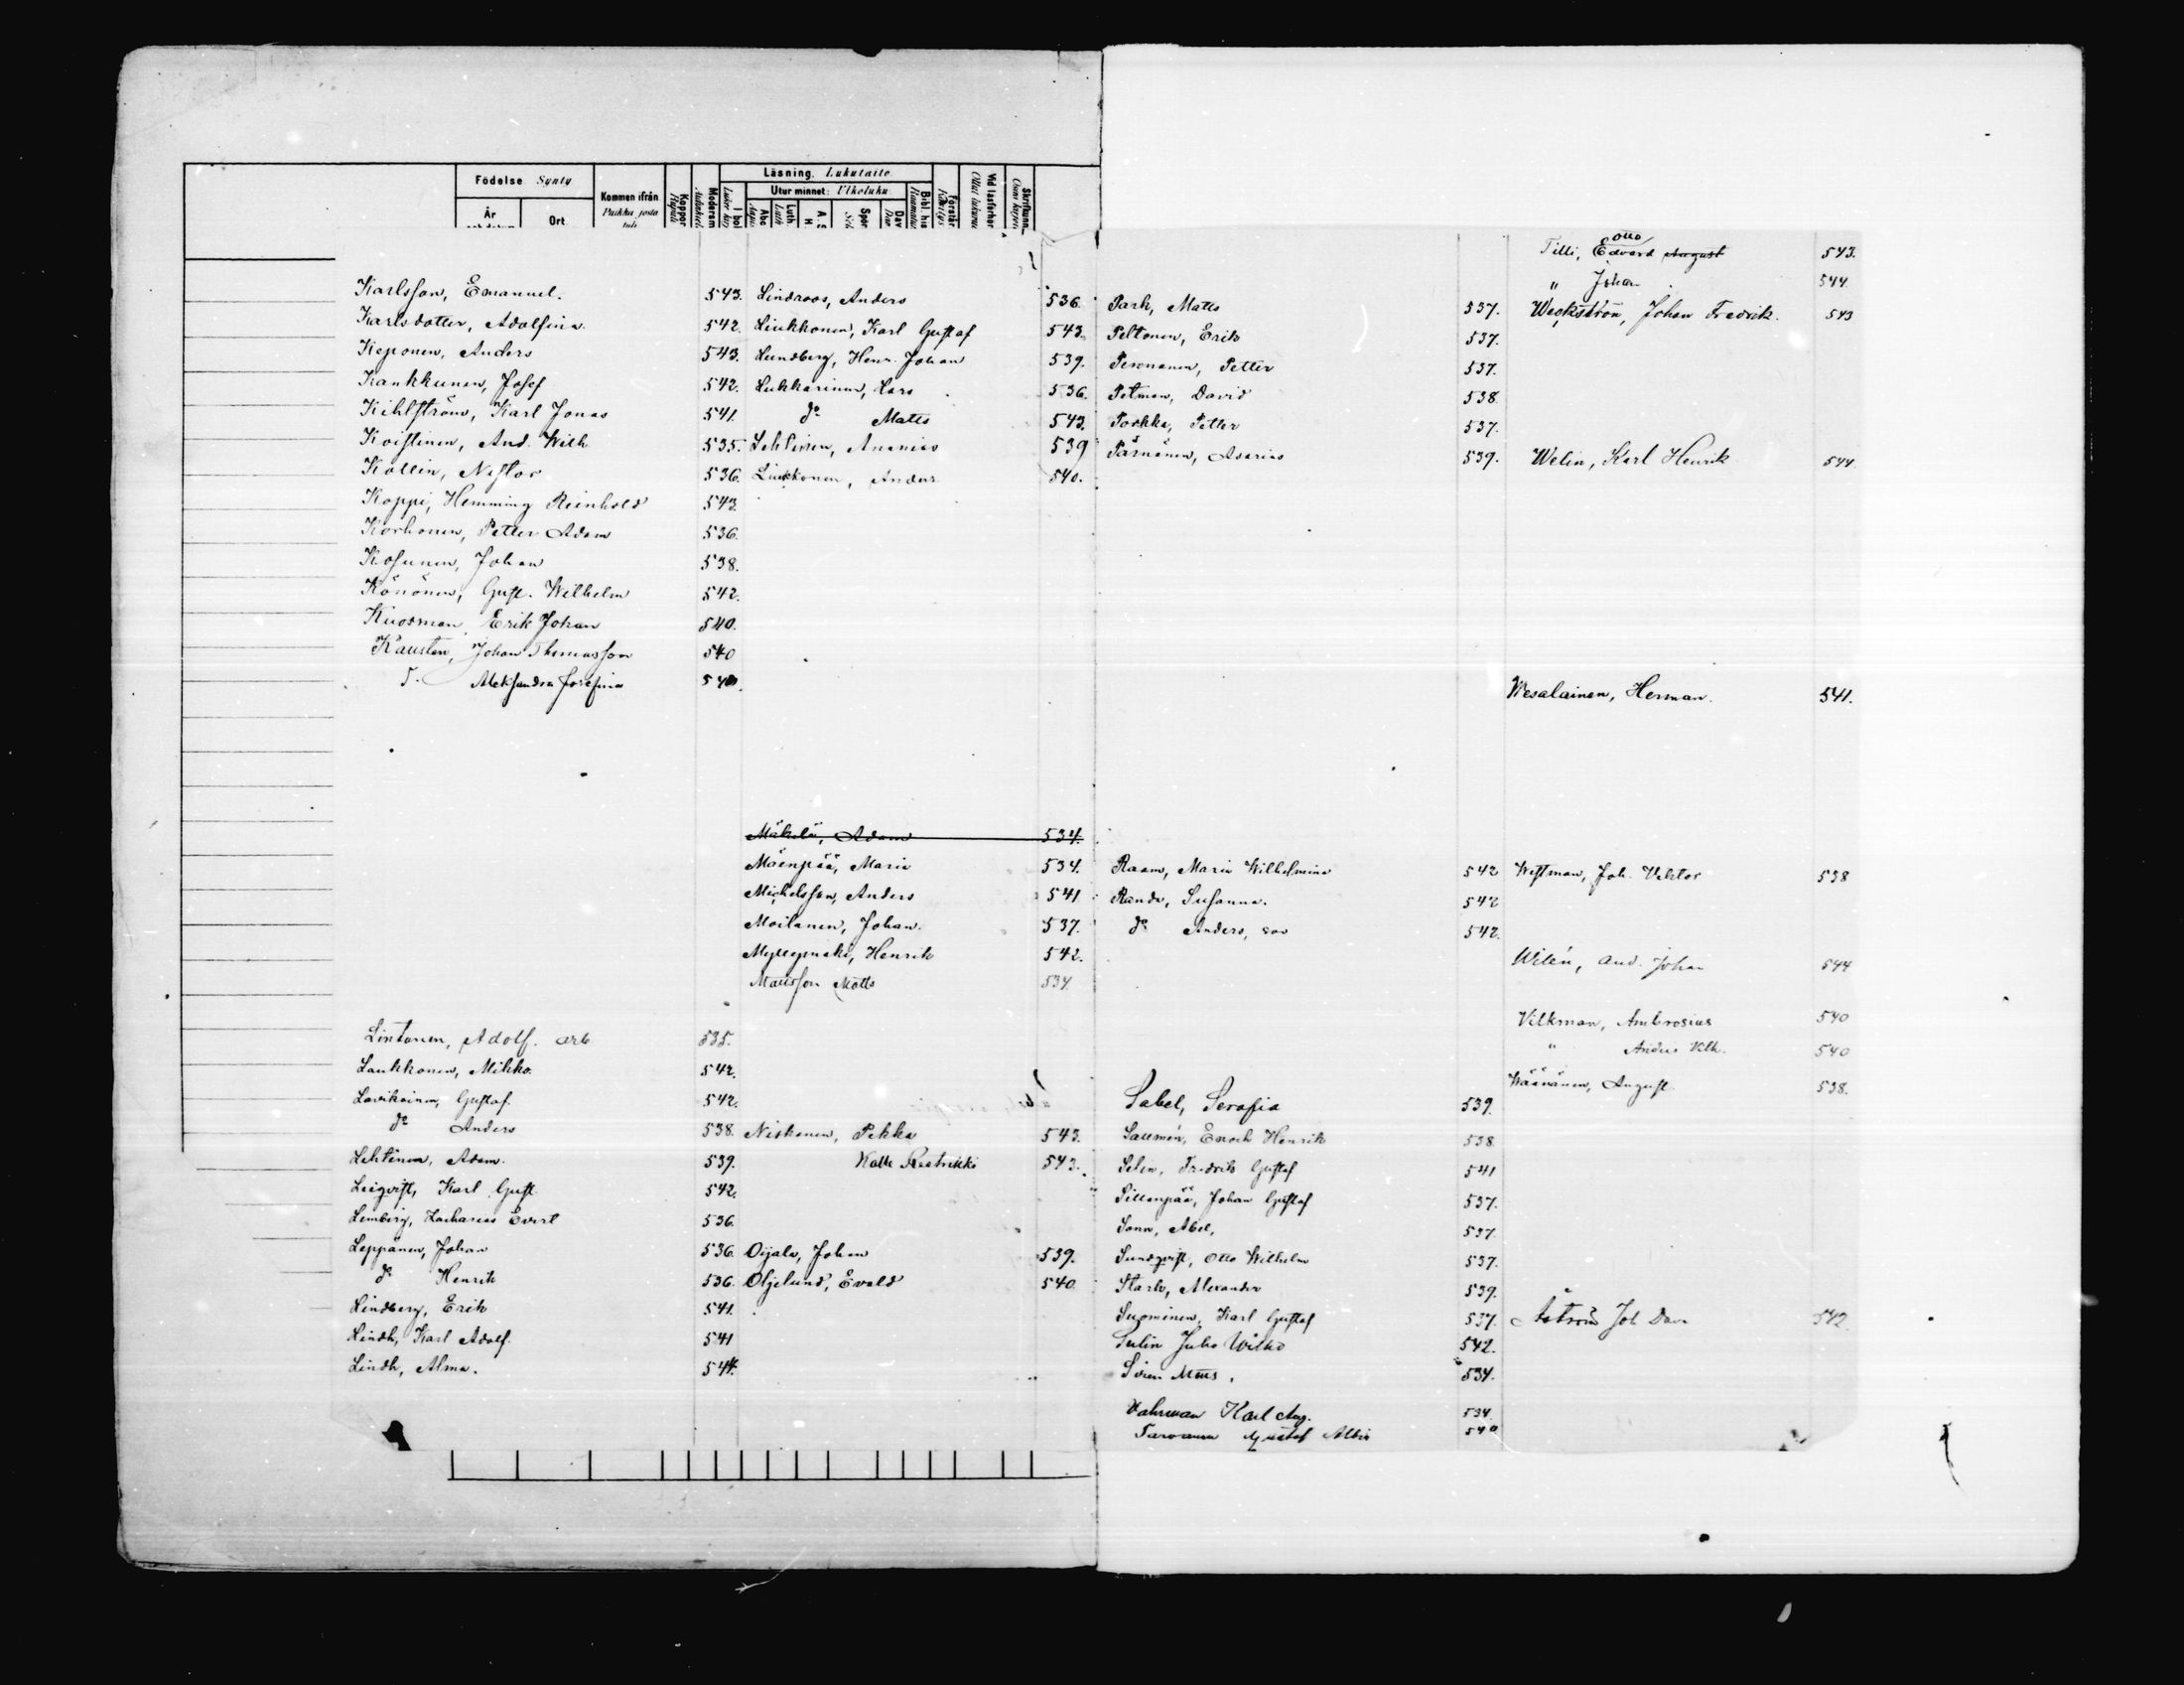 Födelse Synty
Är
Ort
Kommen ifrån
Paikka josta
tuli
Koppor
Läsning. Lukutaito
Utur minnet: Ulkoluku
I bok
Abc
Luth.
Spör
Dav
Bibl. his
Vid läsförhör
Karlsson, Emanuel. 543.
Karlsdotter, Adolfina. 542.
Keponen, Anders 543.
Kankkunen, Josef 542.
Kihlström, Karl Jonas 541.
Koistinen, And. Wilh 535.
Kollin, Nestor 536.
Koppi, Hemming Reinhold 543.
Korhonen, Petter Adam 536.
Kosunen, Johan 538.
Könönen, Gust. Wilhelm 542.
Kuosman Erik Johan 540.
Kausten, Johan Thomasson 540
Aleksandra Josefina 540.
Lintonen, Adolf. arb 535.
Laukkonen, Mikko. 542.
Lavikainen, Gustaf. 542.
do Anders 538.
Lehtinen, Adam. 539.
Leiqvist, Karl Gust. 542.
Lemberg, Zacharias Evert 536.
Leppänen, Johan 536.
do Henrik 536.
Lindberg, Erik 541.
Lindh, Karl Adolf. 541
Lindh, Alma. 544.
Lindroos, Anders 536.
Liukkonen, Karl Gustaf 543.
Lundberg, Henr. Johan 539.
Lukkarinen, Lars 536.
do Matts 543.
Lehtinen, Ananias 539
Liukkonen, Anders 540.
Mäkelä, Adam 534.
Mäenpää, Maria 534.
Michelsson, Anders 541
Moilanen, Johan. 537.
Myllymäki, Henrik 542.
Mattsson Matts 534.
Niskanen, Pekka 543.
Kalle Restrikki 543.
Oijala, Johan 539.
Oljelund, Evald 540
Park, Matts 537.
Peltonen, Erik 537.
Pesonanen, Petter 537.
Petman, David 538
Porkka, Petter 537.
Pärnänen, Asarias 539.
Raam, Maria Wilhelmina 542
Randa, Susanna. 542
do Anders, son 542.
Sabel, Serafia 539.
Sallmén, Enoch Henrik 538
Selen, Fredrik Gustaf 541
Sillanpää, Johan Gustaf 537.
Sonn, Abel, 537.
Sundqvist, Otto Wilhelm 537.
Stark, Alexander 539.
Suominen, Karl Gustaf 537.
Sulin Juho Wilho 542.
534.
Vahrman Karl Aug. 534
Gustaf Albin 540
Otto
Tilli, Edvard August 543.
" Johan 544
Weckström, Johan Fredrik. 543
Welin, Karl Henrik 544.
Wesalainen, Herman. 541.
Westman, Joh. Viktor 538
Wilén, And. Johan 544
Vilkman, Ambrosius 540
" Anders Vilh. 540
Wäänänen, August. 538.
Åström Joh Dav. 542.